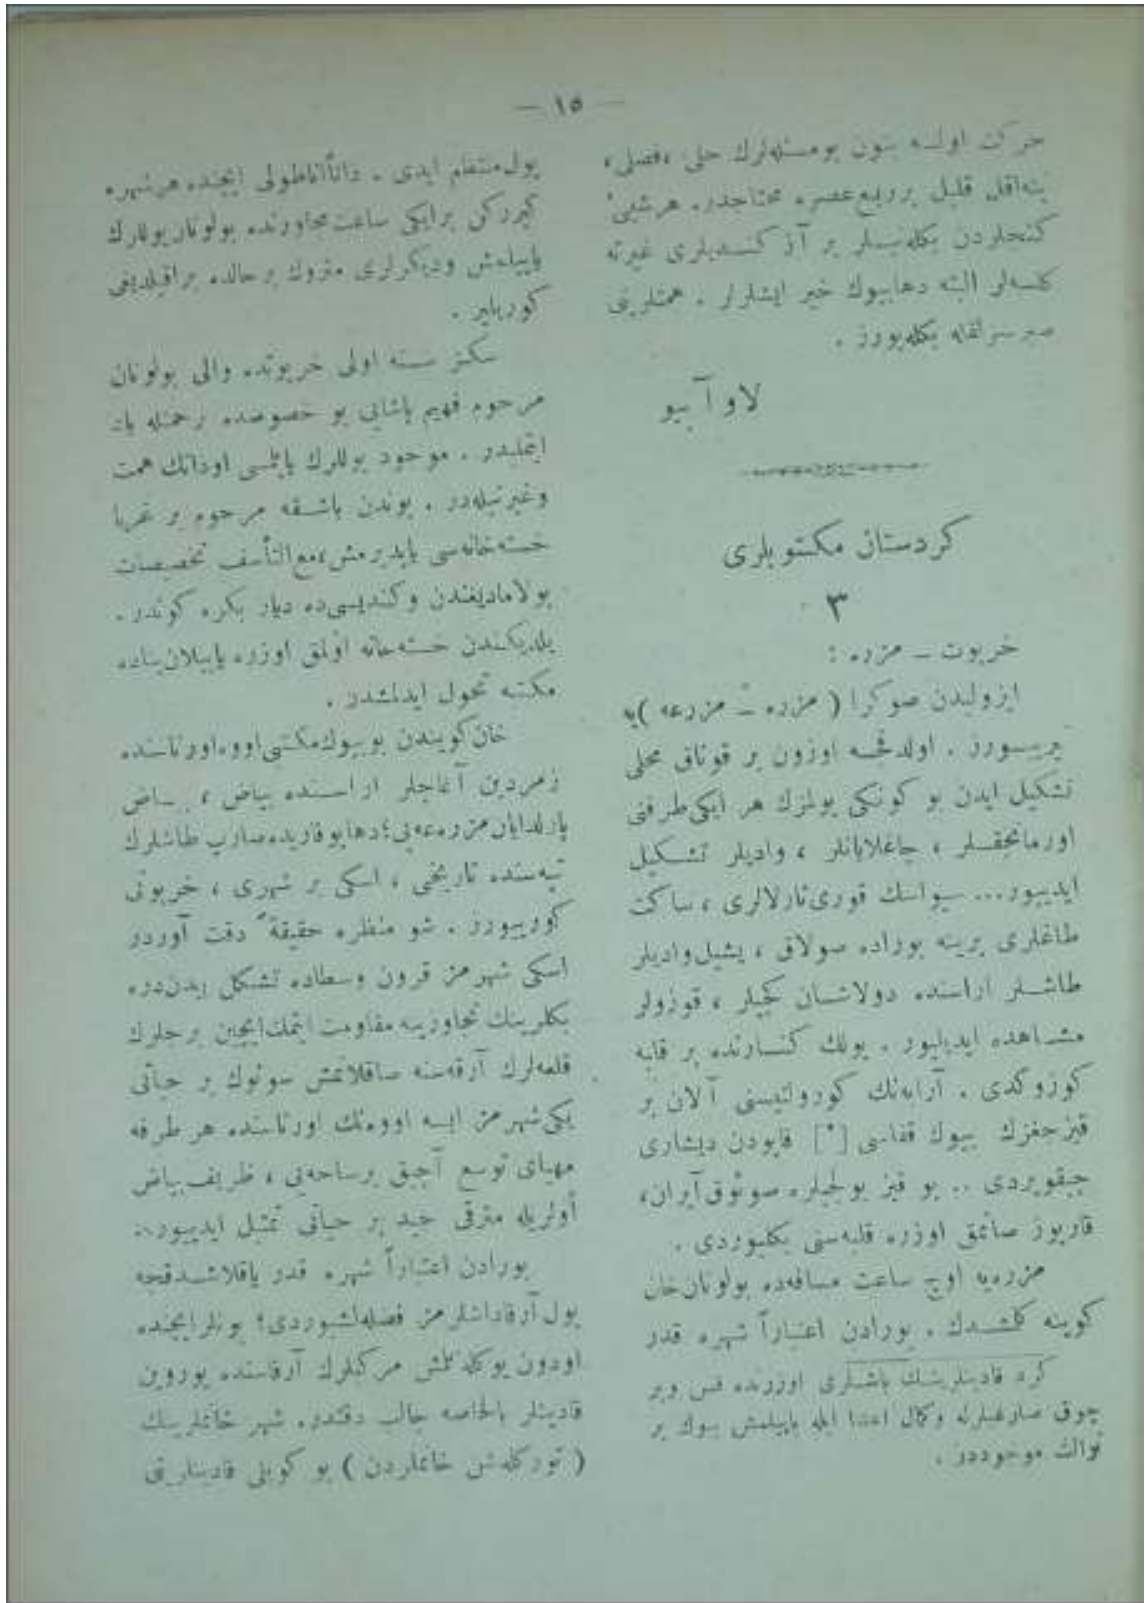 — ١٥ —
حركت اولسه بتون بومسئله‌لرك حلی ،فصلی،
ینه‌اقل قلیل بر ربع عصره محتاجدر. هر شیئی
كنجلردن بكله‌نیلر بر آز كندیلری غیرته
كلسه‌لر البته دهابیوك خیر ایشلرلر . همتلرینی
صبرسزلقله بكله‌یورز .
لاو آپو
كردستان مكتوبلری
٣
خربوت ــ مزره :
ایزولیدن صوكرا ( مزره ــ مزرعه )یه
یریسورز . اولدقجه اوزون بر قوناق محلی
تشكیل ایدن بو كونكی یولمزك هر ایكی طرفنی
اورمانجقلر ، چاغلایانلر ، وادیلر تشكیل
ایدییور... سیواسك قوری تارلالری ، ساكت
طاغلری یرینه بوراده صولاق ، یشیل وادیلر
طاشلر اراسنده دولاشان كچیلر ، قوزولر
مشاهده ایدیلیور . یولك كنارنده بر قلبه
كوزوكدی . آرابه‌نك كورولتیسنی آلان بر
قیزجغزك بیوك قفاسی [*] قاپودن دیشاری
چیقویردی .. بو قیز یولجیلره صوئوق آیران،
قارپوز صاتمق اوزره قلبه‌سنی بكلیوردی .
مزره‌یه اوچ ساعت مسافه‌ده بولونان خان
كوینه كلشدك . بورادن اعتباراً شهره قدر
كرد قادینلرینك باشلری اوزرنده فس وبر
چوق صارغیلرله وكمال اعتنا ایله یاپیلمش بیوك بر
توالت موجوددر .
یول منتظم ایدی . ذاتاً اناطولی ایچنده هر شهره
كیرركن برایكی ساعت مجاورنده بولونان یوللرك
یاپیلمش ودیكرلری متروك بر حالده براقیلدیغی
كوریلیر .
سكز سنه اولی خربوتده والی بولونان
مرحوم فهیم پاشایی بو خصوصده رحمتله یاد
ایتملیدر . موجود یوللرك یاپلمسی اوذاتك همت
وغیرتیله‌در . بوندن باشقه مرحوم بر غربا
خسته‌خانه‌سی یاپدیرمش،مع‌التأسف تخصیصات
بولامادیغندن وكندیسی‌ده دیار بكره كوندر .
یلدیكندن خسته‌خانه اولمق اوزره یاپیلان بناده
مكتبه تحول ایدلمشدر .
خان كویندن بو بیوك مكتبی اووه اورتاسنده
زمردین آغاجلر اراسنده بیاض ، بیاض
پارلدایان مزره‌عه‌یی؛دها یوقاریده صارپ طاشلرك
تپه‌سنده تاریخی ، اسكی بر شهری ، خربوتی
كورییورز . شو منظره حقیقةً دقت آوردر
اسكی شهرمز قرون وسطاده تشكل ایدن دره
بكلرینك تجاوزینه مقاومت ایتمك ایچین برجلرك
قلعه‌لرك آرقه‌سنه صاقلانمش سونوك بر حیاتی
یكی شهرمز ایسه اووه‌نك اورتاسنده هر طرفه
مهیای توسع آچیق بر ساحه‌یی ، ظریف بیاض
أولریله مترقی جید بر حیاتی تمثیل ایدییور..
بورادن اعتباراً شهره قدر یاقلاشدقجه
یول آرقداشلرمز فضله‌لشیوردی؛ بونلر ایچنده
اودون یوكله‌تلمش مركبلرك آرقاسنده یوروین
قادینلر بالخاصه جالب دقتدر. شهر خانملرینك
( توركله‌شن خانملردن ) بو كویلی قادینلرینی